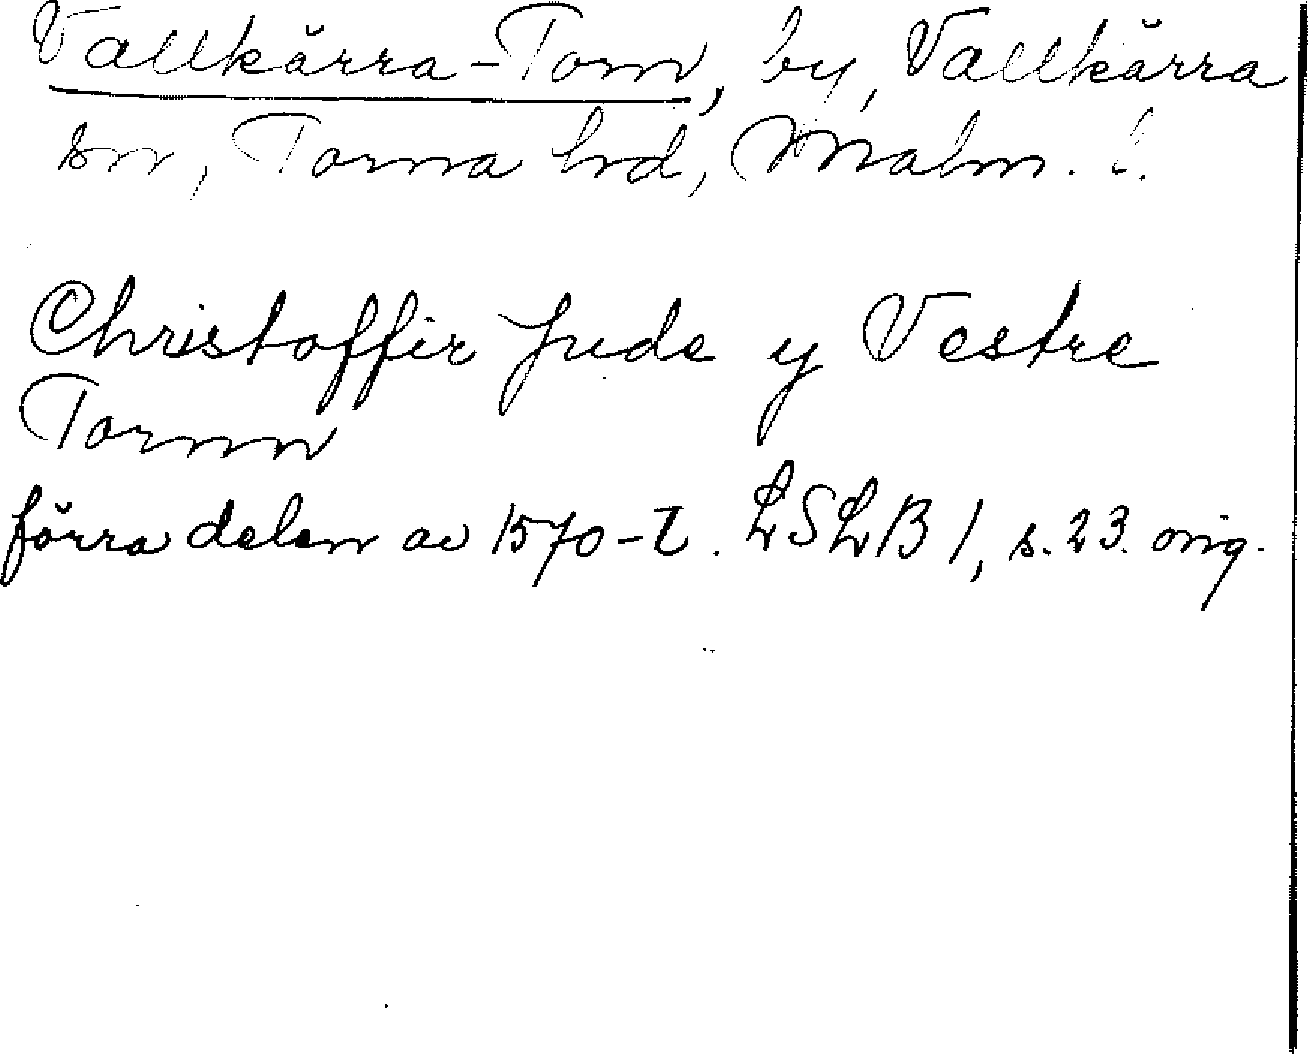 Vallkärra-Torn, by, Vallkärra
sn, Torna hrd, Malm. l.
Christoffir Jude y Vestre
Tornn
förra delen av 1570-t. LSLB 1, s. 23. orig.